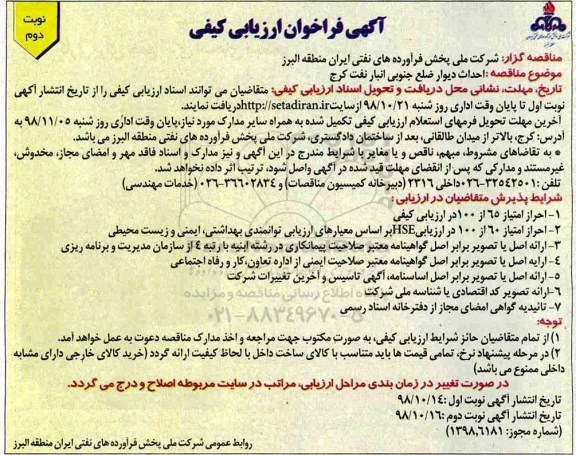 نوبت
دوم
آگهی فراخوان ارزیابی کیفی
مناقصه گزار: شرکت ملی پخش فرآورده های نفتی ایران منطقه البرز
موضوع مناقصه: احداث دیوار ضلع جنوبی انبار نفت کرج
تاریخ، مهلت، نشانی محل دریافت و تحویل اسناد ارزیابی کیفی: متقاضیان می توانند اسناد ارزیابی کیفی را از تاریخ انتشار آگهی
نوبت اول تا پایان وقت اداری روز شنبه ۹۸/۱۰/۲۱ ازسایت http://setadiran.ir دریافت نمایند.
آخرین مهلت تحویل فرمهای استعلام ارزیابی کیفی تکمیل شده به همراه سایر مدارک مورد نیاز،پایان وقت اداری روز شنبه ۹۸/۱۱/۰۵ به
آدرس: کرج، بالاتر از میدان طالقانی، بعد از ساختمان دادگستری، شرکت ملی پخش فرآورده های نفتی منطقه البرز می باشد.
* به تقاضاهای مشروط، مبهم، ناقص و یا مغایر با شرایط مندرج در این آگهی و نیز مدارک و اسناد فاقد مهر و امضای مجاز، مخدوش،
غیرمستند و مدارکی که پس از انقضای مهلت قید شده در آگهی واصل شود، ترتیب اثر داده نخواهد شد.
تلفن: ۳۲۵۴۲۵۰۱-۰۲۶ داخلی ۲۳۱۶ (دبیرخانه کمیسیون مناقصات) و ۳۶۶۰۲۸۳۴-۰۲۶ (خدمات مهندسی)
شرایط پذیرش متقاضیان در ارزیابی:
۱- احراز امتیاز ۶۵ از ۱۰۰ در ارزیابی کیفی
۲- احراز امتیاز ۶۰ از ۱۰۰ در ارزیابی HSE بر اساس معیارهای ارزیابی توانمندی بهداشتی، ایمنی و زیست محیطی
۳- ارائه اصل یا تصویر برابر اصل گواهینامه معتبر صلاحیت پیمانکاری در رشته ابنیه با رتبه ۴ از سازمان مدیریت و برنامه ریزی
۴- ارایه اصل یا تصویر برابر اصل گواهینامه معتبر صلاحیت ایمنی از اداره تعاون،کار و رفاه اجتماعی
۵- ارائه اصل یا تصویر برابر اصل اساسنامه، آگهی تاسیس و آخرین تغییرات شرکت
۶- ارائه تصویر کد اقتصادی یا شناسه ملی شرکت
۷- تائیدیه گواهی امضای مجاز از دفترخانه اسناد رسمی
پایگاه اطلاع رسانی مناقصه و مزایده
۰۲۱-۸۸۳۴۹۶۷۰-۵
توجه:
۱) از تمام متقاضیان حائز شرایط ارزیابی کیفی، به صورت مکتوب جهت مراجعه و اخذ مدارک مناقصه دعوت به عمل خواهد آمد.
۲) در مرحله پیشنهاد نرخ، تمامی قیمت ها باید متناسب با کالای ساخت داخل با لحاظ کیفیت ارائه گردد (خرید کالای خارجی دارای مشابه
داخلی ممنوع می باشد)
در صورت تغییر در زمان بندی مراحل ارزیابی، مراتب در سایت مربوطه اصلاح و درج می گردد.
تاریخ انتشار آگهی نوبت اول: ۹۸/۱۰/۱۴
تاریخ انتشار آگهی نوبت دوم: ۹۸/۱۰/۱۶
(شماره مجوز: ۱۳۹۸،۶۱۸۱)
روابط عمومی شرکت ملی پخش فرآورده های نفتی ایران منطقه البرز